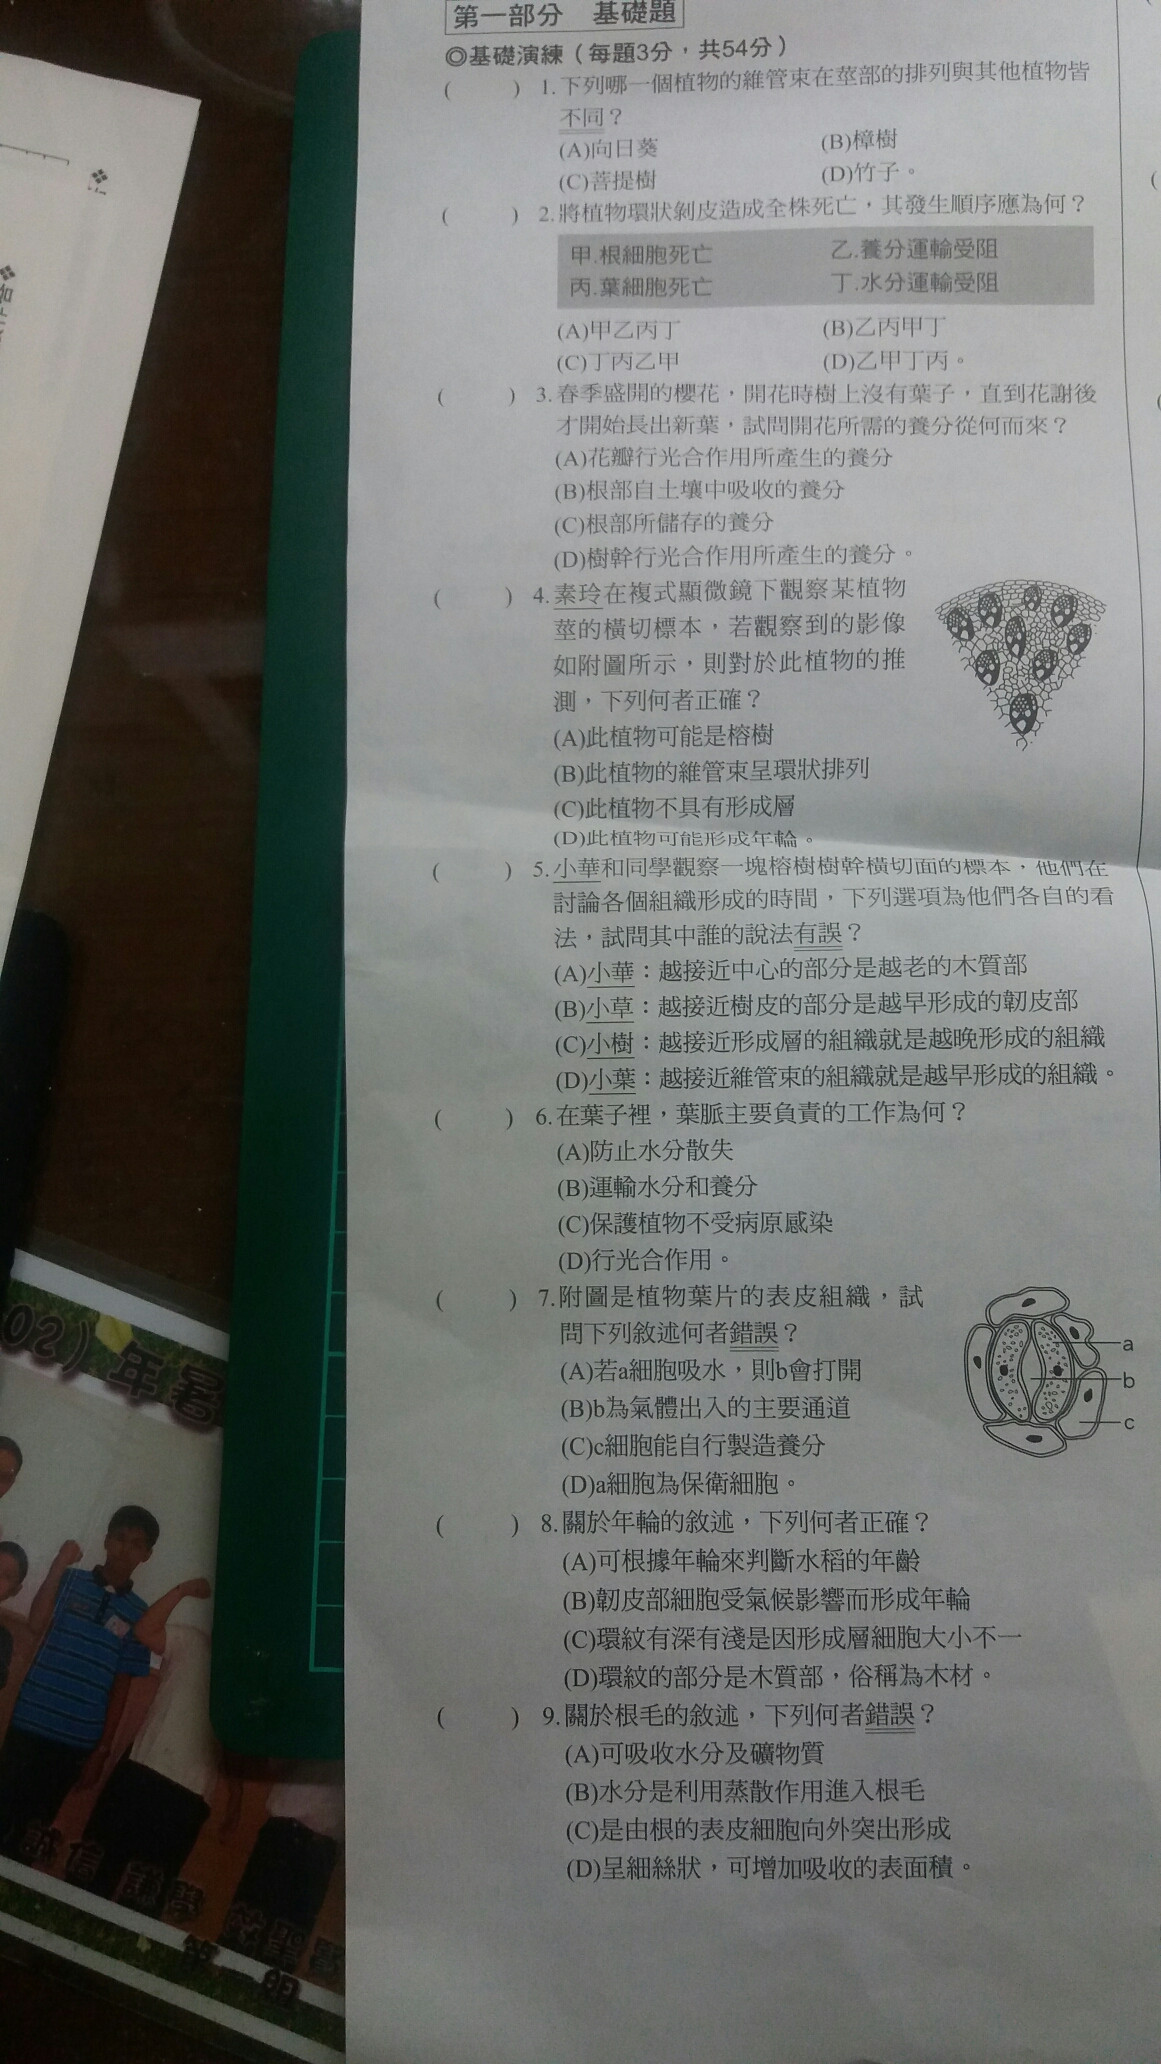 第一部分 基礎題
◎基礎演練（每題3分，共54分）
( ) 1.下列哪一個植物的維管束在莖部的排列與其他植物皆
不同？
(A)向日葵 (B)樟樹
(C)菩提樹 (D)竹子。
( ) 2.將植物環狀剝皮造成全株死亡，其發生順序應為何？
甲.根細胞死亡 乙.養分運輸受阻
丙.葉細胞死亡 丁.水分運輸受阻
(A)甲乙丙丁 (B)乙丙甲丁
(C)丁丙乙甲 (D)乙甲丁丙。
( ) 3.春季盛開的櫻花，開花時樹上沒有葉子，直到花謝後
才開始長出新葉，試問開花所需的養分從何而來？
(A)花瓣行光合作用所產生的養分
(B)根部自土壤中吸收的養分
(C)根部所儲存的養分
(D)樹幹行光合作用所產生的養分。
( ) 4.素玲在複式顯微鏡下觀察某植物
莖的橫切標本，若觀察到的影像
如附圖所示，則對於此植物的推
測，下列何者正確？
(A)此植物可能是榕樹
(B)此植物的維管束呈環狀排列
(C)此植物不具有形成層
(D)此植物可能形成年輪。
( ) 5.小華和同學觀察一塊榕樹樹幹橫切面的標本，他們在
討論各個組織形成的時間，下列選項為他們各自的看
法，試問其中誰的說法有誤？
(A)小華：越接近中心的部分是越老的木質部
(B)小草：越接近樹皮的部分是越早形成的韌皮部
(C)小樹：越接近形成層的組織就是越晚形成的組織
(D)小葉：越接近維管束的組織就是越早形成的組織。
( ) 6.在葉子裡，葉脈主要負責的工作為何？
(A)防止水分散失
(B)運輸水分和養分
(C)保護植物不受病原感染
(D)行光合作用。
( ) 7.附圖是植物葉片的表皮組織，試
問下列敘述何者錯誤？
(A)若a細胞吸水，則b會打開
(B)b為氣體出入的主要通道
(C)c細胞能自行製造養分
(D)a細胞為保衛細胞。
a
b
c
( ) 8.關於年輪的敘述，下列何者正確？
(A)可根據年輪來判斷水稻的年齡
(B)韌皮部細胞受氣候影響而形成年輪
(C)環紋有深有淺是因形成層細胞大小不一
(D)環紋的部分是木質部，俗稱為木材。
( ) 9.關於根毛的敘述，下列何者錯誤？
(A)可吸收水分及礦物質
(B)水分是利用蒸散作用進入根毛
(C)是由根的表皮細胞向外突出形成
(D)呈細絲狀，可增加吸收的表面積。
02）年暑
誠信
第一組